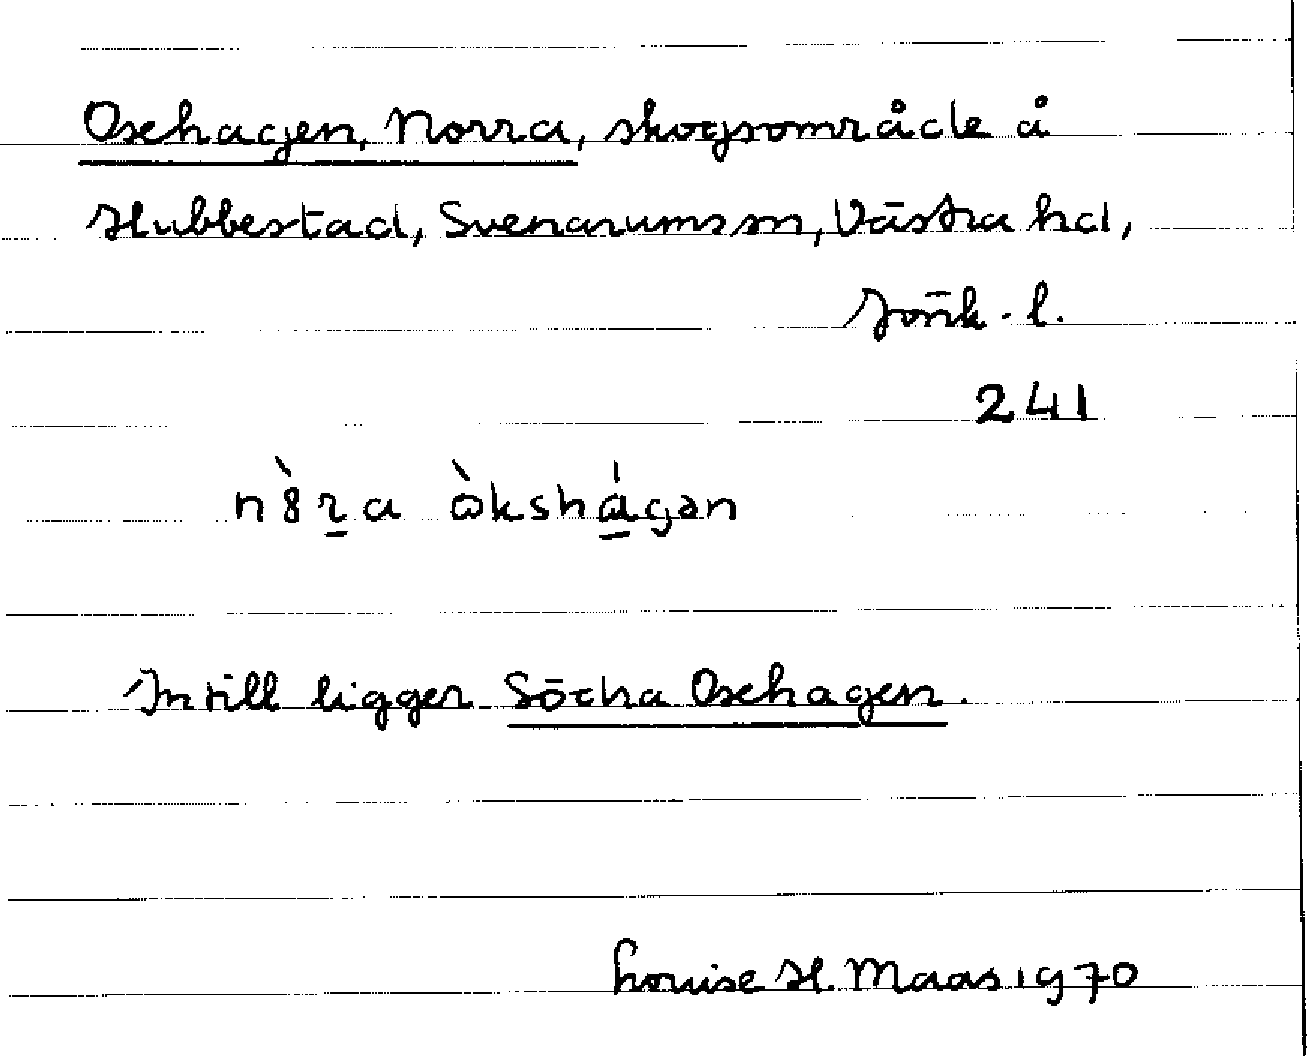 Oxehagen, Norra, skogsområde å
Hubbestad, Svenarums sn, Västra hd,
Jönk. l.
241
Intill ligger Södra Oxehagen.
Louise H. Maas 1970